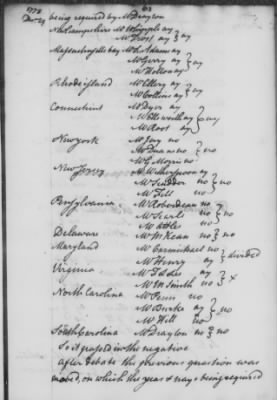 1778
63
Dec 24
being required by Mr Drayton
N. hampshire Mr Whipple ay } ay
Mr Frost ay
Massachusetts bay Mr S. Adams ay
Mr Gerry ay } ay
Mr Holten ay
Rhodeisland Mr Ellery ay } ay
Mr Collins ay
Connecticut Mr Dyer ay
Mr Ellsworth ay } ay
Mr Root ay
New york Mr Jay no
Mr Duane no } no
Mr G Morris no
New Jersey Mr Witherspoon ay
Mr Scudder no } no
Mr Fell no
Pensylvania Mr Roberdeau no
Mr Searle no } no
Mr Atlee no
Delaware Mr McKean no } no
Maryland Mr Carmichael no } divided
Mr Henry ay
Virginia Mr F L Lee ay } x
Mr M Smith no
North Carolina Mr Penn no
Mr Burke ay } no
Mr Hill no
South Carolina Mr Drayton no } no
So it passed in the negative
after debate the previous question was
moved, on which the yeas & nays being required